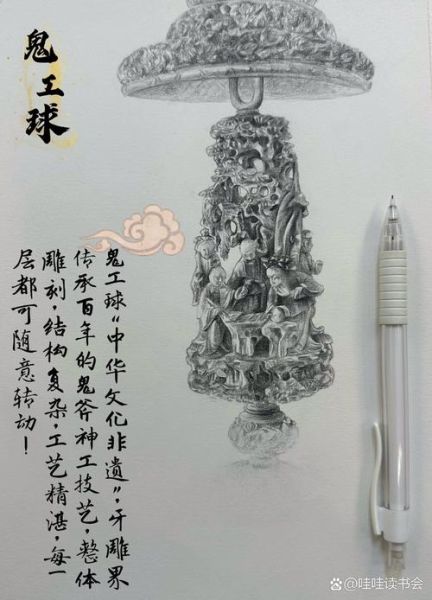 鬼工球
鬼工球“中华文化非遗”，牙雕界
传承百年的鬼斧神工技艺，整体
雕刻，结构复杂，工艺精湛，每一
层都可随意转动！
@哇哇读书会